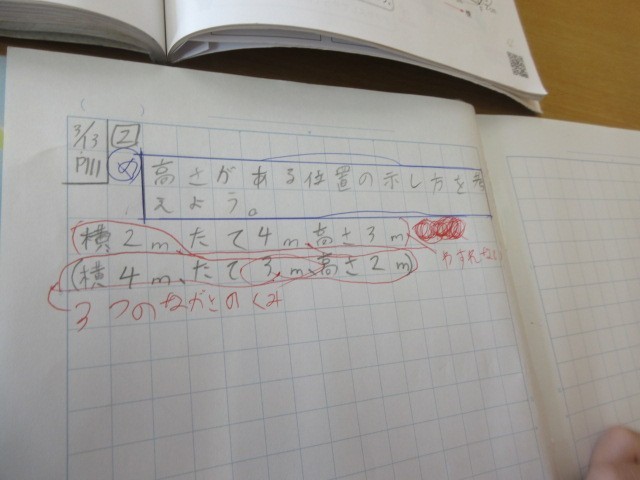 3/13 2
P111 め 高さがある位置の示し方を考
えよう。
(横2m、たて4m、高さ3m)
(横4m、たて3m、高さ2m)
3つのながさのくみ